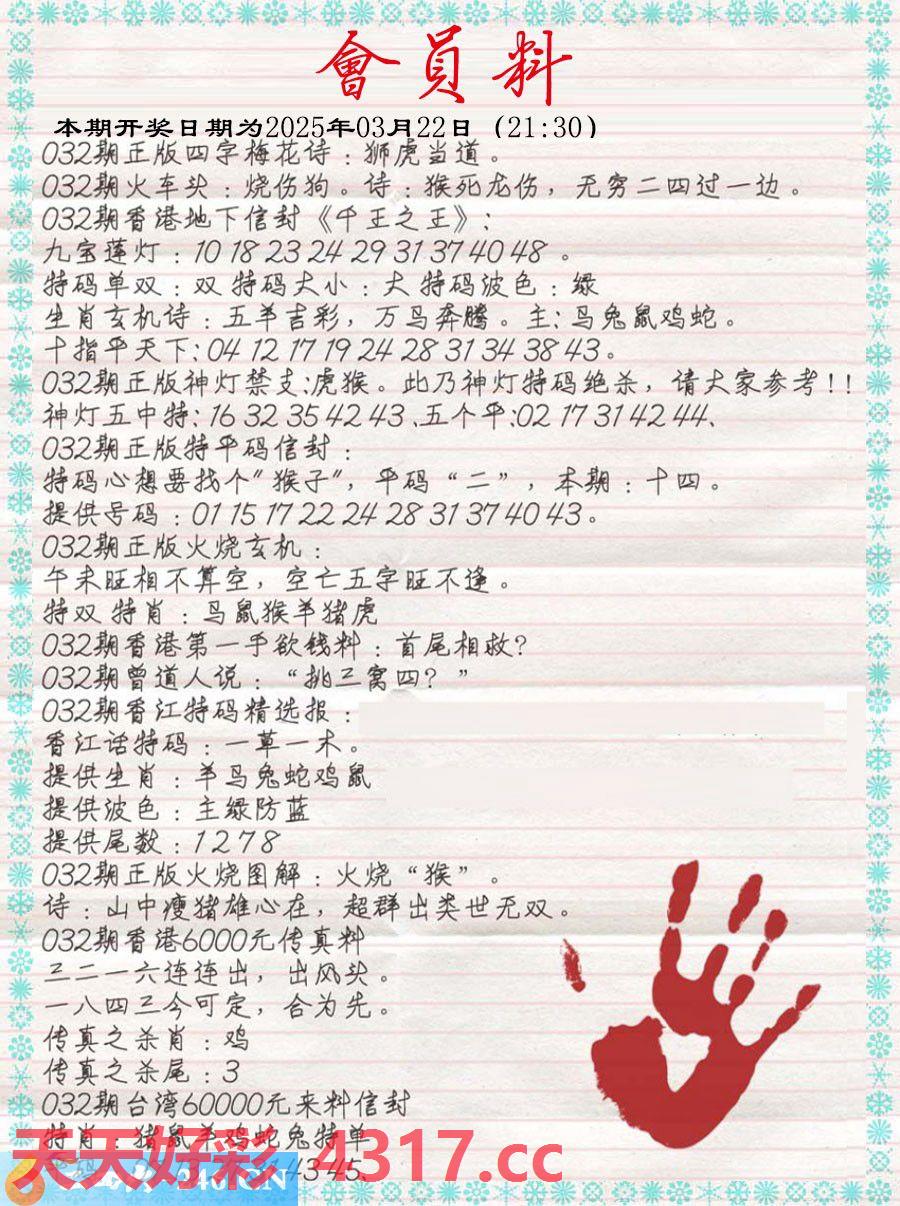 會員料
本期开奖日期为2025年03月22日（21:30）
032期正版四字梅花诗：狮虎当道。
032期火车头：烧伤狗。诗：猴死龙伤，无穷二四过一边。
032期香港地下信封《千王之王》：
九宝莲灯：10 18 23 24 29 31 37 40 48 。
特码单双：双 特码大小：大 特码波色：绿
生肖玄机诗：五羊吉彩，万鸟奔腾。主：鸟兔鼠鸡蛇。
十指平天下：04 12 17 19 24 28 31 34 38 43。
032期正版神灯禁支：虎猴。此乃神灯特码绝杀，请大家参考！！
神灯五中特：16 32 35 42 43 、五个平：02 17 31 42 44、
032期正版特平码信封：
特码心想要找个“猴子”，平码“二”，本期：十四。
提供号码：01 15 17 22 24 28 31 37 40 43。
032期正版火烧玄机：
午未旺相不算空，空亡五字旺不逢。
特双 特肖：鸟鼠猴羊猪虎
032期香港第一手欲钱料：首尾相救？
032期曾道人说：“挑三窝四？”
032期香江特码精选报：
香江话特码：一草一木。
提供生肖：羊鸟兔蛇鸡鼠
提供波色：主绿防蓝
提供尾数：1 2 7 8
032期正版火烧图解：火烧“猴”。
诗：山中瘦猪雄心在，超群出类世无双。
032期香港6000元传真料
三二一六连连出，出风头。
一八四三今可定，合为先。
传真之杀肖：鸡
传真之杀尾：3
032期台湾60000元来料信封
特肖：猪鼠羊鸡蛇兔特单
天天好彩 4317.cc
43 45、